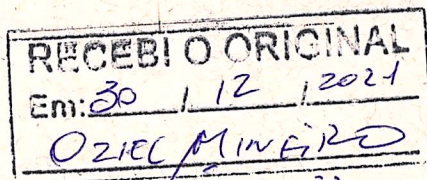 RECEBI O ORIGINAL
Em: 30 / 12 / 2021
OZIEL MINEIRO